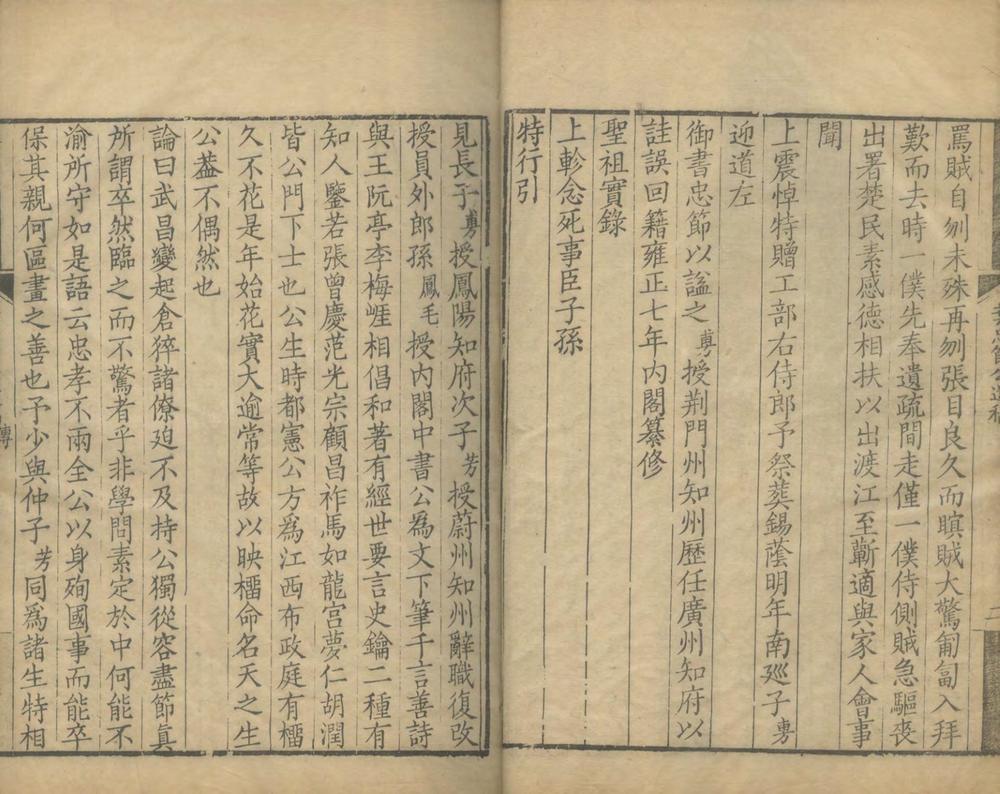 罵賊自刎未殊再刎張目良久而瞋賊大驚匍匐入拜
歎而去時一僕先奉遺疏間走僅一僕侍側賊急驅喪
出署楚民素感德相扶以出渡江至蘄適與家人會事
聞
上震悼特贈工部右侍郎予祭葬錫蔭明年南廵子旉
迎道左
御書忠節以謚之旉授荆門州知州歷任廣州知府以
詿誤回籍雍正七年内閣纂修
聖祖實錄
上軫念死事臣子孫
特行引
見長子旉授鳳陽知府次子芳授蔚州知州辭職復改
授員外郎孫鳳毛授内閣中書公爲文下筆千言善詩
與王阮亭李梅崕相倡和著有經世要言史鑰二種有
知人鑒若張曾慶范光宗顧昌祚馬如龍宫夢仁胡潤
皆公門下士也公生時都憲公方爲江西布政庭有橊
久不花是年始花實大逾常等故以映橊命名天之生
公葢不偶然也
論曰武昌變起倉猝諸僚廹不及持公獨從容盡節眞
所謂卒然臨之而不驚者乎非學問素定於中何能不
渝所守如是語云忠孝不兩全公以身殉國事而能卒
保其親何區畫之善也予少與仲子芳同爲諸生特相
傳
二